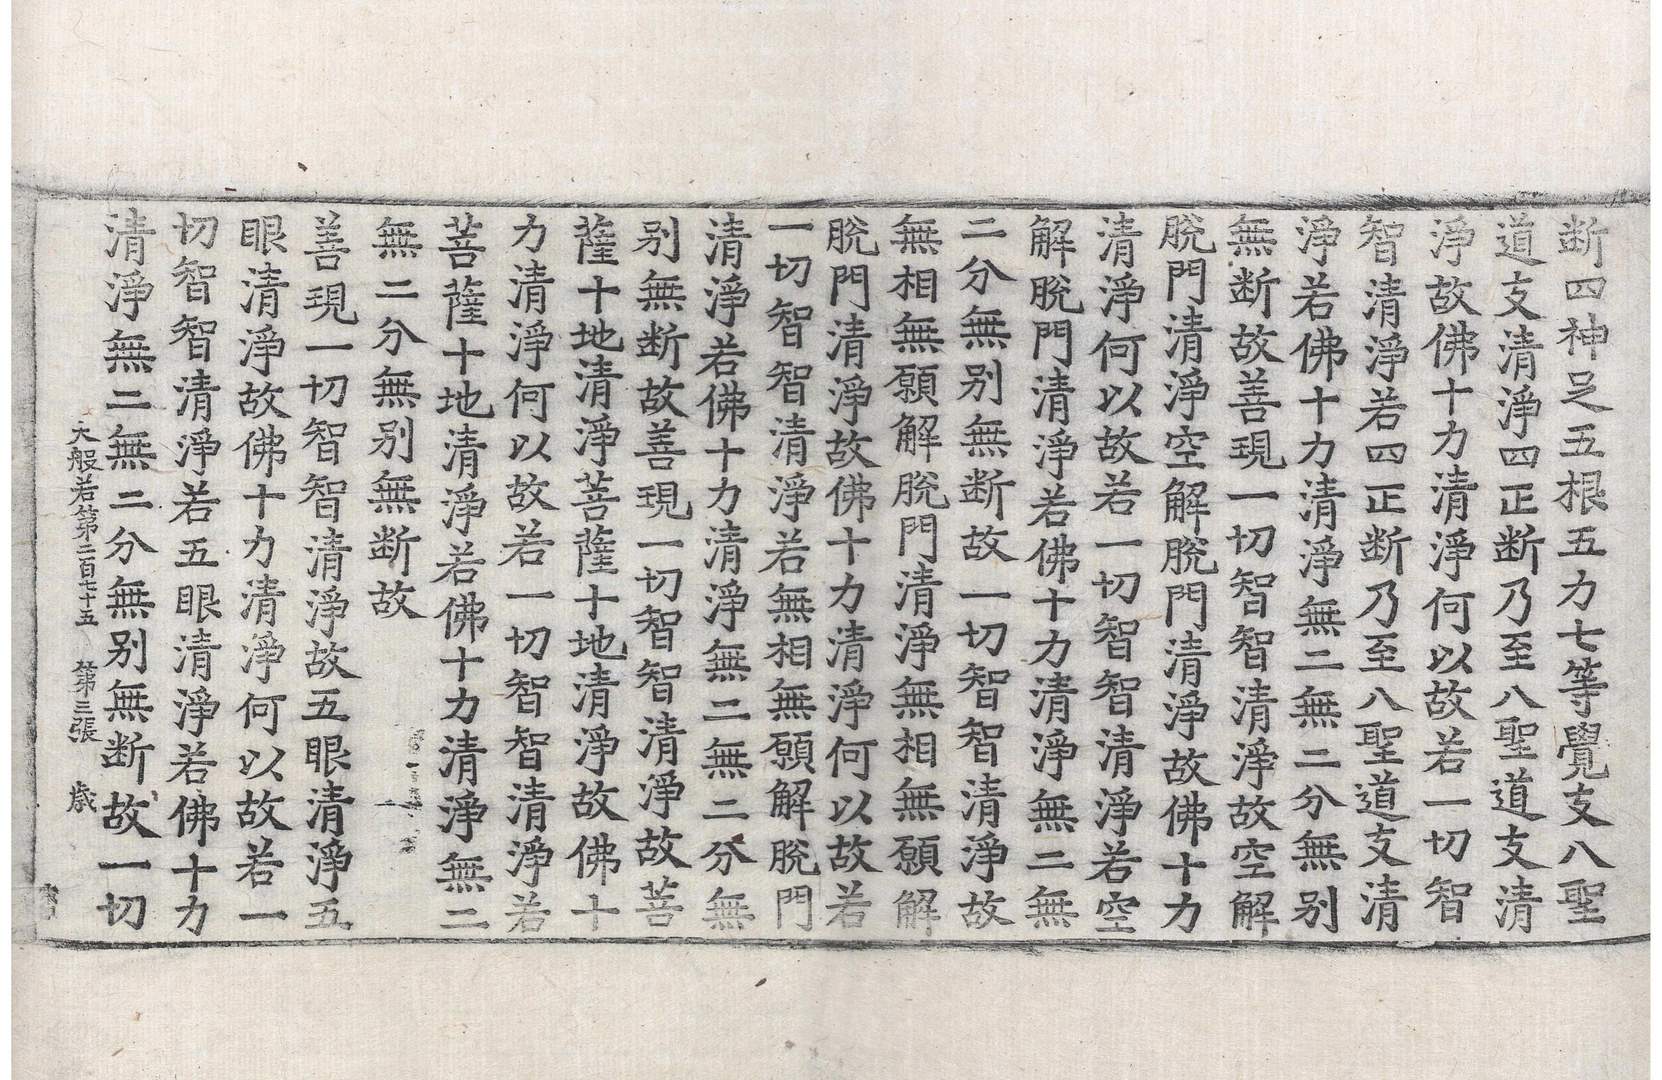 断四神足五根五力七等覺支八聖
道支清淨四正断乃至八聖道支清
淨故佛十力清淨何以故若一切智
智清淨若四正断乃至八聖道支清
淨若佛十力清淨無二無二分無别
無断故善現一切智智清淨故空解
脫門清淨空解脫門清淨故佛十力
清淨何以故若一切智智清淨若空
解脫門清淨若佛十力清淨無二無
二分無别無断故一切智智清淨故
無相無願解脫門清淨無相無願解
脫門清淨故佛十力清淨何以故若
一切智智清淨若無相無願解脫門
清淨若佛十力清淨無二無二分無
别無断故善現一切智智清淨故菩
薩十地清淨菩薩十地清淨故佛十
力清淨何以故若一切智智清淨若
菩薩十地清淨若佛十力清淨無二
無二分無别無断故
善現一切智智清淨故五眼清淨五
眼清淨故佛十力清淨何以故若一
切智智清淨若五眼清淨若佛十力
清淨無二無二分無别無断故一切
大般若第二百七十五 第三張 歳